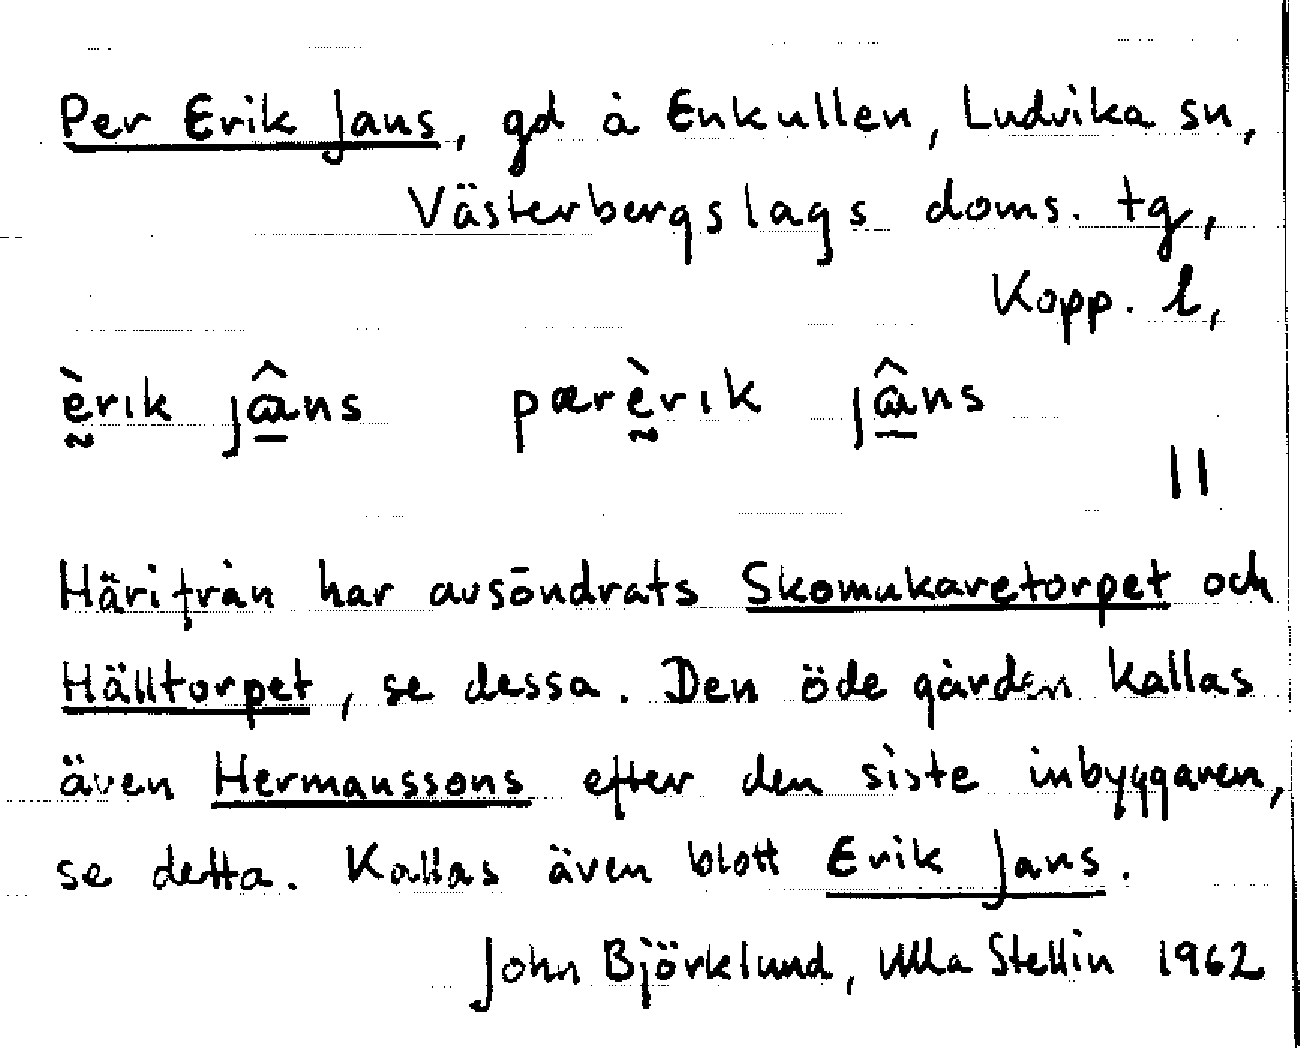 Per Erik Jans, gd å Enkullen, Ludvika sn,
Västerbergslags doms. tg,
Kopp. l,
ḛ̀rık jâ̱ns pærḛ̀rık jâ̱ns
||
Härifrån har avsöndrats Skomakaretorpet och
Hälltorpet, se dessa. Den öde gården kallas
även Hermanssons efter den siste inbyggaren,
se detta. Kallas även blott Erik Jans.
John Björklund, Ulla Stellin 1962